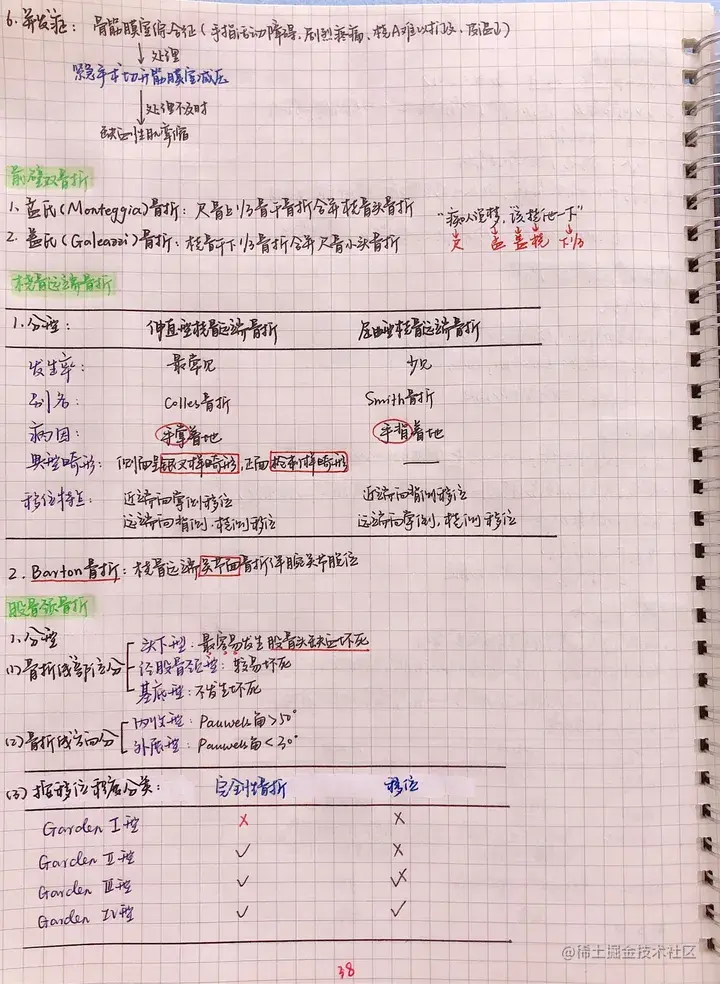 6. 并发症: 骨筋膜室综合征(手指活动障碍,剧烈疼痛,桡A难以扪及,皮温↓)
↓处理
紧急手术切开筋膜室减压
↓处理不及时
缺血性肌挛缩
前臂双骨折
1. 孟氏(Monteggia)骨折: 尺骨上1/3骨干骨折合并桡骨头骨折 "痴人说梦,该揍他一下"
2. 盖氏(Galeazzi)骨折: 桡骨干下1/3骨折合并尺骨小头骨折 尺 孟 盖 桡 下1/3
桡骨远端骨折
1.分型: 伸直型桡骨远端骨折 屈曲型桡骨远端骨折
发生率: 最常见 少见
别名: Colles骨折 Smith骨折
病因: 手掌着地 手背着地
典型畸形: 侧面呈银叉样畸形,正面枪刺样畸形 —
移位特点: 近端向掌侧移位 近端向背侧移位
远端向背侧、桡侧移位 远端向掌侧,桡侧移位
2. Barton骨折: 桡骨远端关节面骨折伴腕关节脱位
股骨颈骨折
1.分型
(1)骨折线部位分 头下型: 最容易发生股骨头缺血坏死
经股骨颈型: 较易坏死
基底型: 不发生坏死
(2)骨折线方向分 内收型: Pauwels角>50°
外展型: Pauwels角<30°
(3)按移位程度分类: 完全性骨折 移位
Garden I型 × ×
Garden II型 ✓ ×
Garden III型 ✓ ✓×
Garden IV型 ✓ ✓
38
@稀土掘金技术社区